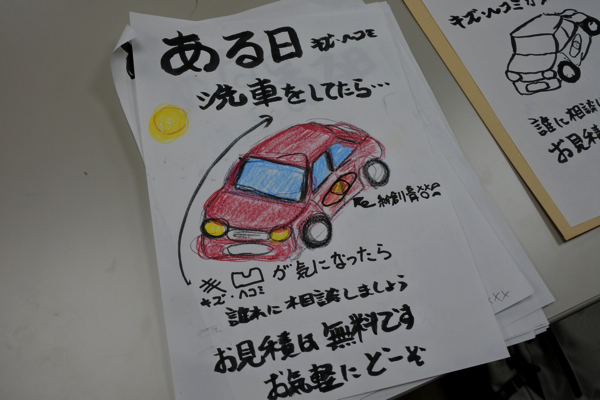 ある日 キズ・ヘコミ
洗車をしてたら…
が気になったら
キズ・ヘコミ
誰に相談しましょう
お見積は無料です
お気軽にどーぞ
キズ・ヘコミが
誰に相談し
お見積